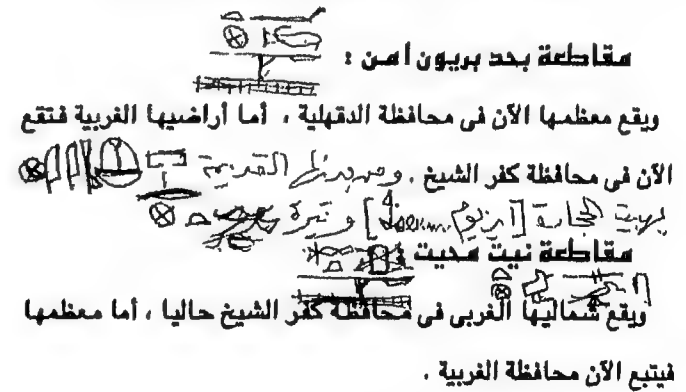 مقاطعة بحد بريون امن :
ويقع معظمها الآن فى محافظة الدقهلية ، أما أراضيها الغربية فتقع
الآن فى محافظة كفر الشيخ . ومن مدنها القديمة
بهبيت الحجارة [ و
مقاطعة نيت محيت :
ويقع شماليها الغربى فى محافظة كفر الشيخ حاليا ، أما معظمها
فيتبع الآن محافظة الغربية .